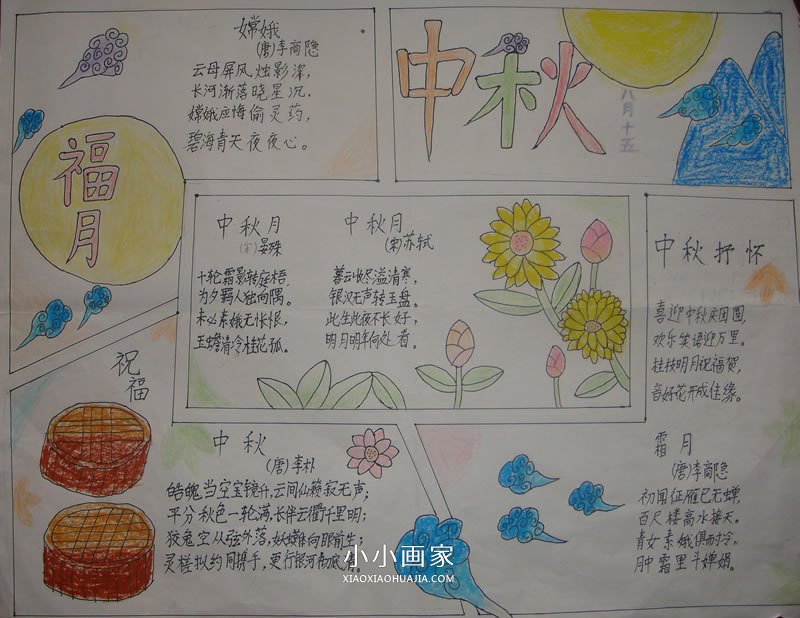 嫦娥
(唐)李商隐
云母屏风烛影深,
长河渐落晓星沉。
嫦娥应悔偷灵药,
碧海青天夜夜心。
中秋
八月十五
福月
中秋月
(宋)晏殊
十轮霜影转庭梧,
为夕羁人独向隅。
未必素娥无怅恨,
玉蟾清冷桂花孤。
中秋月
(宋)苏轼
暮云收尽溢清寒,
银汉无声转玉盘。
此生此夜不长好,
明月明年何处看。
中秋抒怀
喜迎中秋庆团圆,
欢乐笑语迎万里。
桂枝明月祝福贺,
音好花开成佳缘。
祝福
中秋
(唐)李朴
皓魄当空宝镜升,云间仙籁寂无声;
平分秋色一轮满,长伴云衢千里明;
狡兔空从弦外落,妖蟆休向眼前生;
灵槎拟约同携手,更待银河彻底清。
霜月
(唐)李商隐
初闻征雁已无蝉,
百尺楼高水接天。
青女素娥俱耐冷,
月中霜里斗婵娟。
小小画家
XIAOXIAOHUAJIA.COM